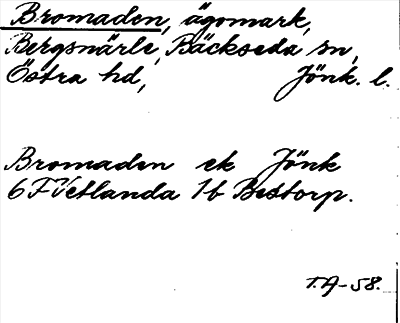 Bromaden, ägomark,
Bergsnärle, Bäckseda sn,
Östra hd, Jönk. l.
Bromaden ek Jönk
6 F Vetlanda 1b Bestorp.
T.A-58.